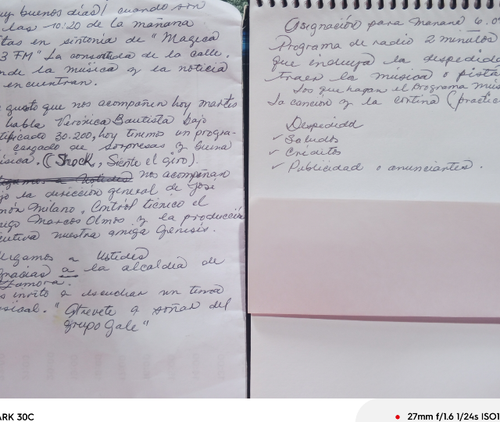 uy buenos dias! cuando son
las 10:20 de la mañana
tas en sintonia de "Magica
3 FM" La consentida de la calle.
nde la música y la noticia
encuentran.
gusto que nos acompañen hoy martes
habla Verónica Bautista bajo
tificado 30.200, hoy tnmos un progra-
cargado de sorpresas y buena
úsica. (Shock, Siente el giro).
nos acompañan
jo la direccion general de Jose
món Milano, Control técnico el
migo Marcos Olmos y la producción
cutiva nuestra amiga Génisis.
llegamos a Ustedes
gracias a la alcaldia de
Zamora.
s invito a escuchar un tema
usical. "Atrevete a soñar del
grupo Gale"
Asignación para Mañana 6.0
Programa de radio 2 minutos
que incluya la despedida
traer la musica o pista
los que hagan el Programa Mus
la cancion y la cortina (practic
Despedida
✓ Saludos
✓ Creditos
✓ Publicidad o anunciantes.
ARK 30C
27mm f/1.6 1/24s ISO1